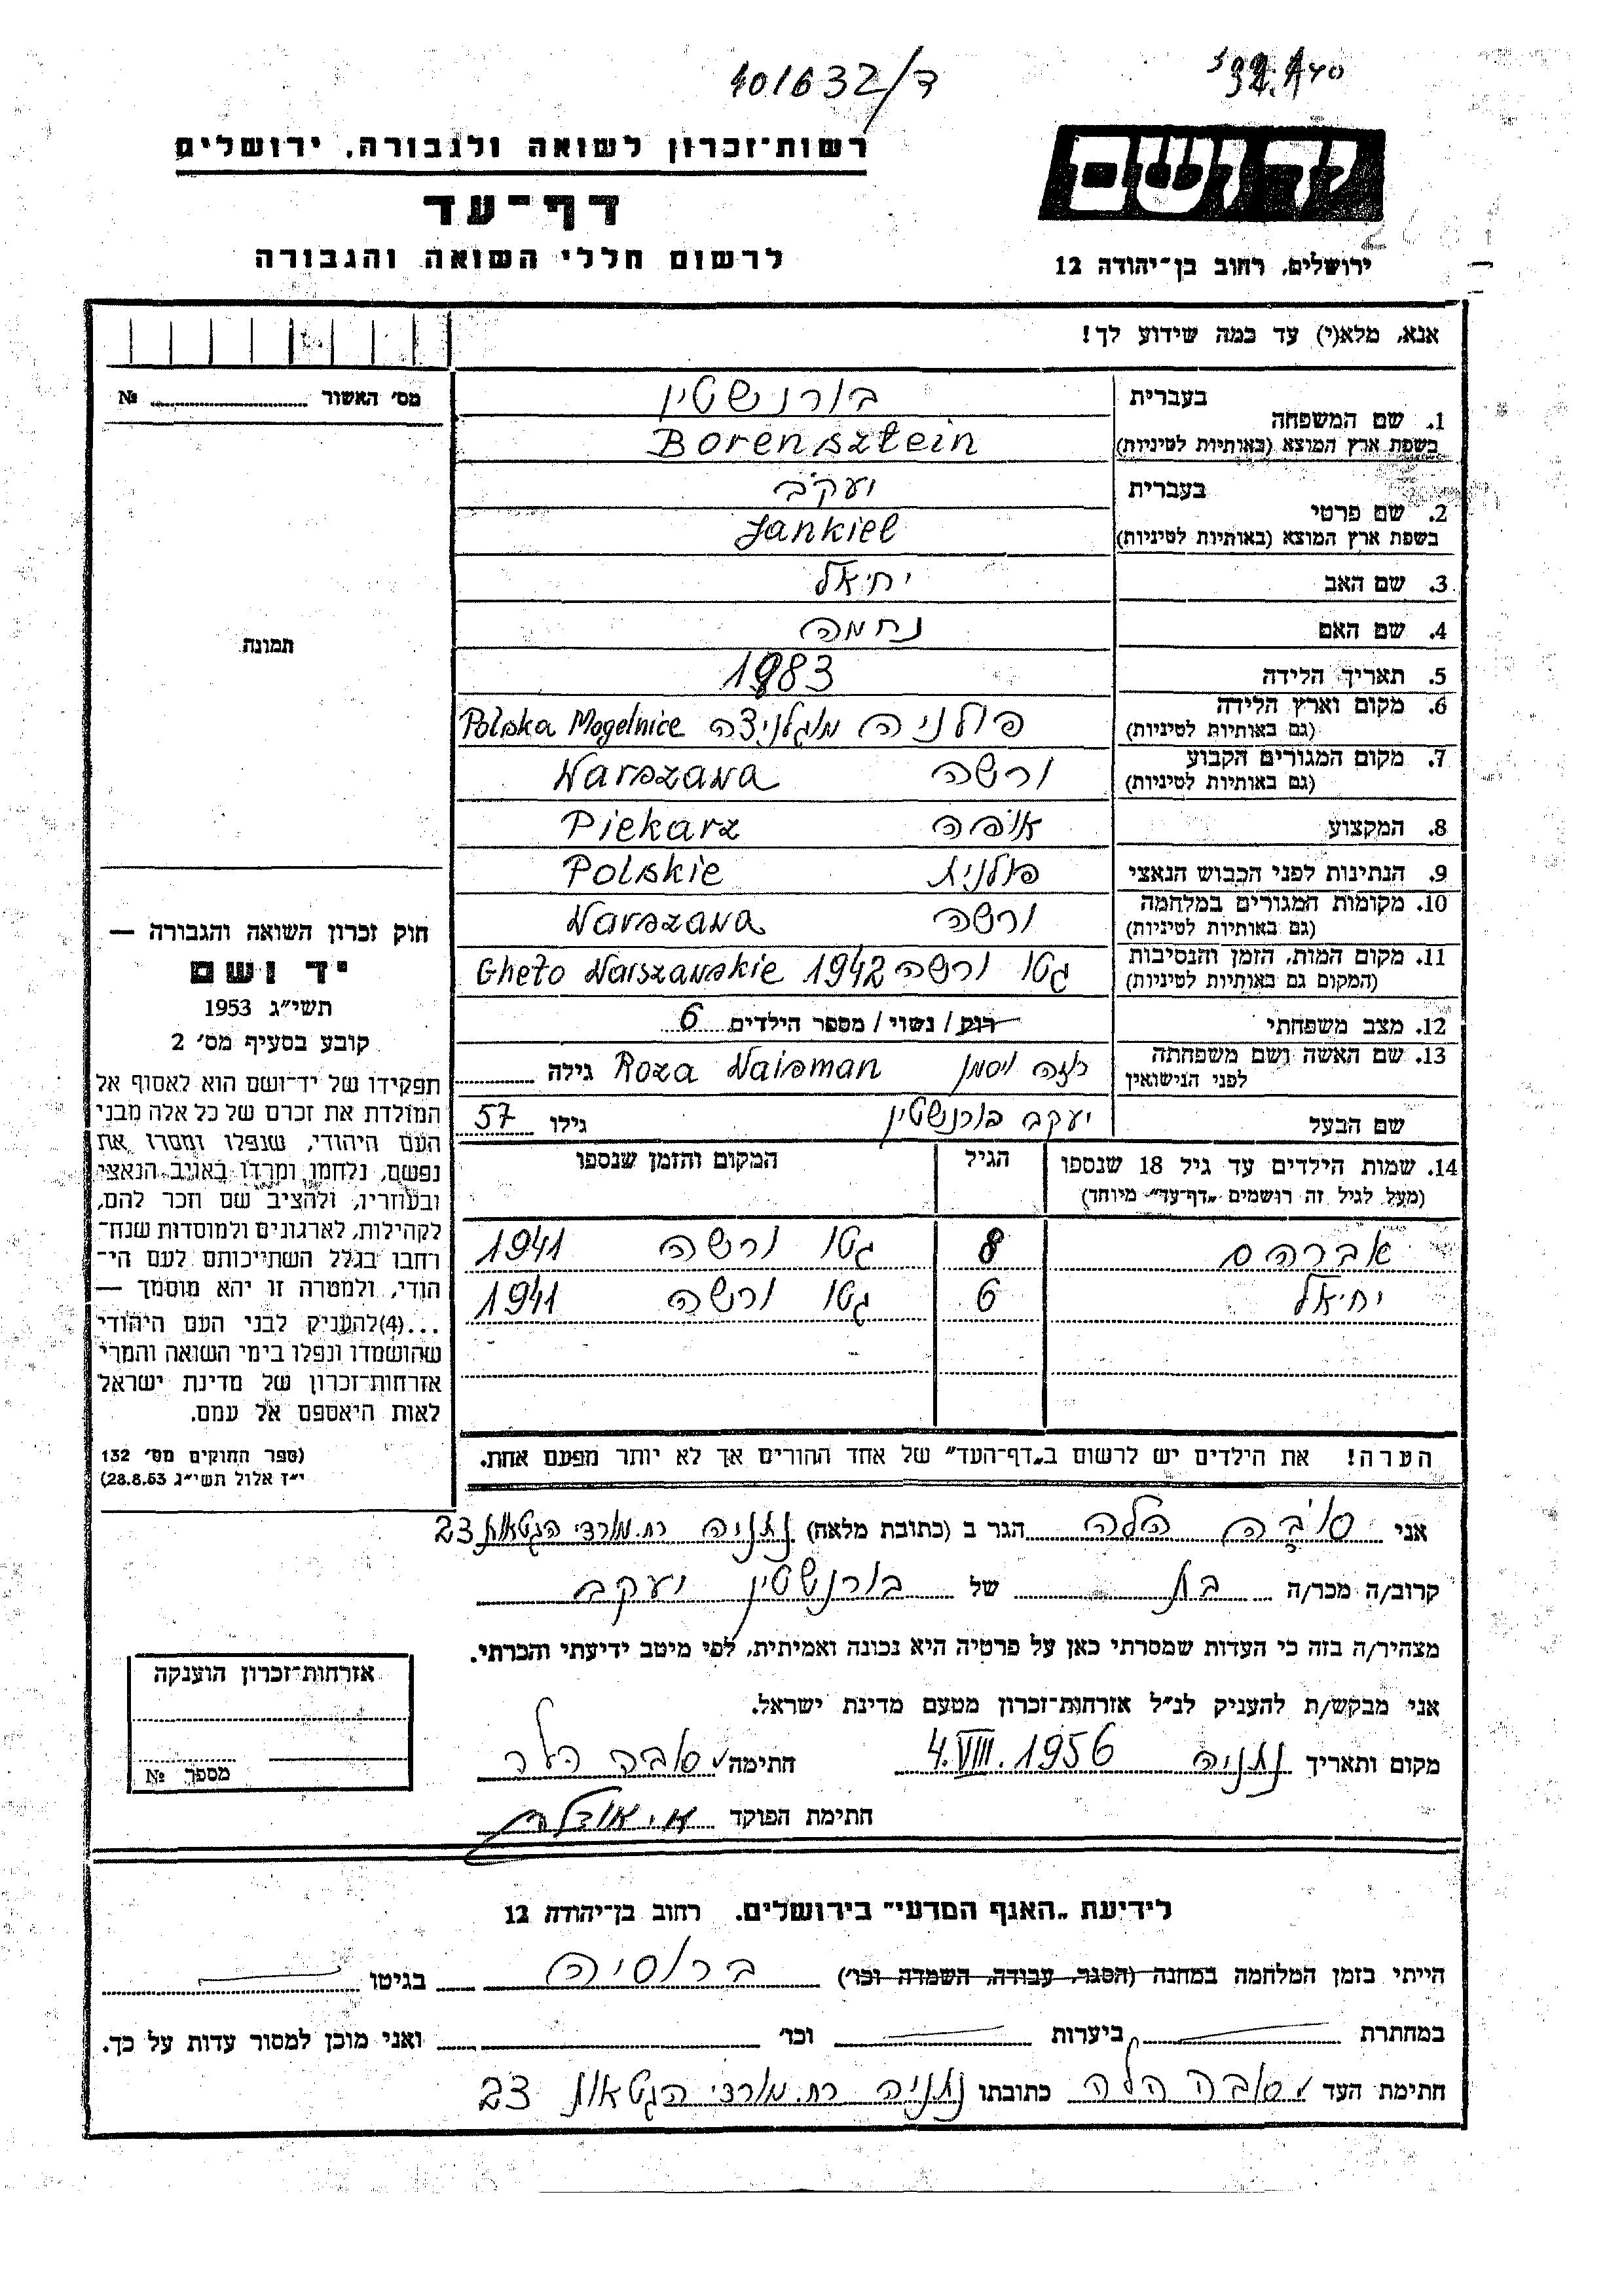 401632/ד
רשות־זכרון לשואה ולגבורה, ירושלים
דף־עד
לרשום חללי השואה והגבורה
יד ושם
ירושלים, רחוב בן־יהודה 12
אנא, מלא(י) עד כמה שידוע לך!
מס׳ האשור № 
1. שם המשפחה בעברית בורנשטין
בשפת ארץ המוצא (באותיות לטיניות) Borensztein
2. שם פרטי בעברית יעקב
בשפת ארץ המוצא (באותיות לטיניות) Jankiel
3. שם האב יחיאל
4. שם האם נחמה
5. תאריך הלידה 1983
6. מקום וארץ הלידה (גם באותיות לטיניות) פולניה מוגלניצה Polska Mogelnice
7. מקום המגורים הקבוע (גם באותיות לטיניות) ורשה Warszawa
8. המקצוע אופה Piekarz
9. הנתינות לפני הכבוש הנאצי פולנית Polskie
10. מקומות המגורים במלחמה (גם באותיות לטיניות) ורשה Warszawa
11. מקום המות, הזמן והנסיבות (המקום גם באותיות לטיניות) גטו ורשה 1942 Gheto Warszawskie
12. מצב משפחתי רווק / נשוי / מספר הילדים 6
13. שם האשה ושם משפחתה לפני הנישואין רוזה ויסמן Roza Waisman גילה
שם הבעל יעקב בורנשטין גילו 57
14. שמות הילדים עד גיל 18 שנספו (מעל לגיל זה רושמים „דף־עד״ מיוחד) הגיל המקום והזמן שנספו
אברהם 8 גטו ורשה 1941
יחיאל 6 גטו ורשה 1941
הערה! את הילדים יש לרשום ב„דף־העד״ של אחד ההורים אך לא יותר מפעם אחת.
תמונה
חוק זכרון השואה והגבורה —
יד ושם
תשי״ג 1953
קובע בסעיף מס׳ 2
תפקידו של יד־ושם הוא לאסוף אל
המולדת את זכרם של כל אלה מבני
העם היהודי, שנפלו ומסרו את
נפשם, נלחמו ומרדו באויב הנאצי
ובעוזריו, ולהציב שם וזכר להם,
לקהילות, לארגונים ולמוסדות שנח־
רבו בגלל השתייכותם לעם הי־
הודי, ולמטרה זו יהא מוסמך —
...(4)להעניק לבני העם היהודי
שהושמדו ונפלו בימי השואה והמרי
אזרחות־זכרון של מדינת ישראל
לאות היאספם אל עמם.
(ספר החוקים מס׳ 132
י״ז אלול תשי״ג 28.8.53)
אני סובה הלה הגר ב (כתובת מלאה) נתניה רח. מורדי הגטאות 23
קרוב/ה מכר/ה בת של בורנשטין יעקב
מצהיר/ה בזה כי העדות שמסרתי כאן על פרטיה היא נכונה ואמיתית, לפי מיטב ידיעתי והכרתי.
אני מבקש/ת להעניק לנ״ל אזרחות־זכרון מטעם מדינת ישראל.
מקום ותאריך נתניה 4.VIII.1956 חתימה סובה הלה
חתימת הפוקד
אזרחות־זכרון הוענקה
מספר №
לידיעת „האגף המדעי״ בירושלים. רחוב בן־יהודה 12
הייתי בזמן המלחמה במחנה (הסגר, עבודה, השמדה וכו׳) ברוסיה בגיטו
במחתרת ביערות וכו׳ ואני מוכן למסור עדות על כך.
חתימת העד סובה הלה כתובתו נתניה רח. מורדי הגטאות 23